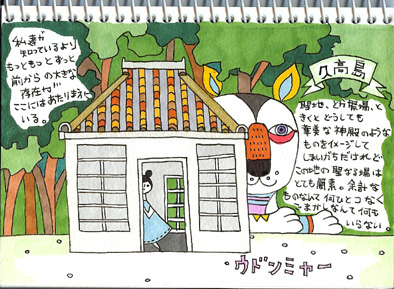 私達が
知っているより
もっともっとずっと
前からの大きな
存在が
ここにはあたりまえに
いる。
久高島
聖地、とか祭場、と
きくと どうしても
華美な神殿のような
ものをイメージして
しまいがちだけれど
この地の聖なる場は
とても簡素。余計な
ものなんて何ひとつなく
ごまかしなんて何も
いらない
ウドンミャー